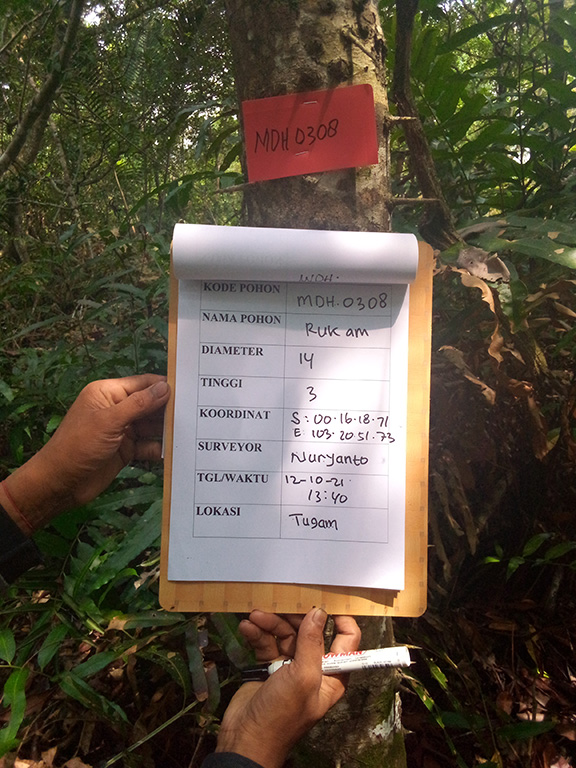 MDH 0308
KODE POHON MDH.0308
NAMA POHON Rukam
DIAMETER 14
TINGGI 3
KOORDINAT S: 00.16.18.71
E: 103.20.51.73
SURVEYOR Nuryanto
TGL/WAKTU 12-10-21
13:40
LOKASI Tugam